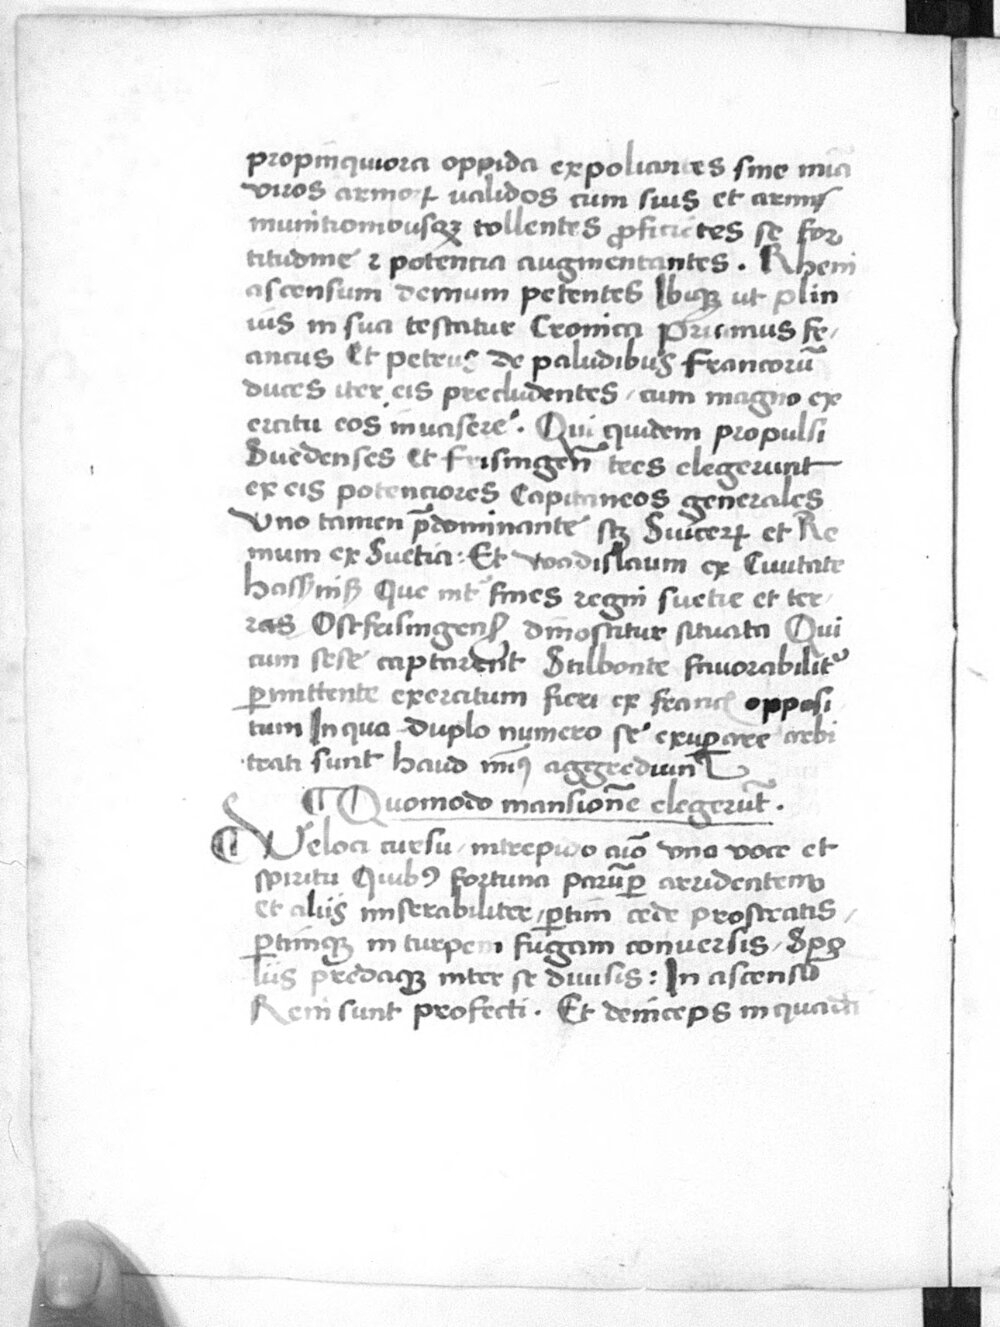 propinquiora oppida expoliantes sine mi͞a
viros armoꝝ validos cum suis et armis
munitionibusqꝫ tollentes ꝓficiētes se for
titudine ⁊ potencia augmentantes . Rheni
ascensum demum petentes Ibiqꝫ ut plin
ius in sua testatur Cronica Priamus fe,
ancus Et petrus de paludibus Francorū
duces iter eis precludentes / cum magno ex
ercitu eos inuasere . Qui quidem propulsi
Suedenses Et frisingen̄ tees elegerunt
ex eis potenciores Capitaneos generales
Vno tamen p̄dominante scꝫ Suicerꝝ et Re
mum ex Suetia : Et vvadislaum ex Ciuitate
hassnis Que int̄ fines regni suetie et ter,
ras Ostfrisingens̄ dinoscitur situata Qui
cum sese captarent Stilbonte fauorabilit̄
ꝑmittente exercitum fieri ex franc opposi
tum In qua duplo numero se exuꝑare arbi
trati sunt haud min᷒ aggrediunt̄
¶ Quomodo mansion̄e elegerūt .
¶ Veloci cursu / intrepido aīo vna voce et
spiritu Quibꝰ fortuna parūꝑ arridente
et aliis miserabiliter / ꝑtim cede prostratis /
ꝑtimqꝫ in turpem fugam conuersis / Spo
liis predaqꝫ inter se diuisis : In ascensu
Reni sunt profecti . Et deinceps in quadā